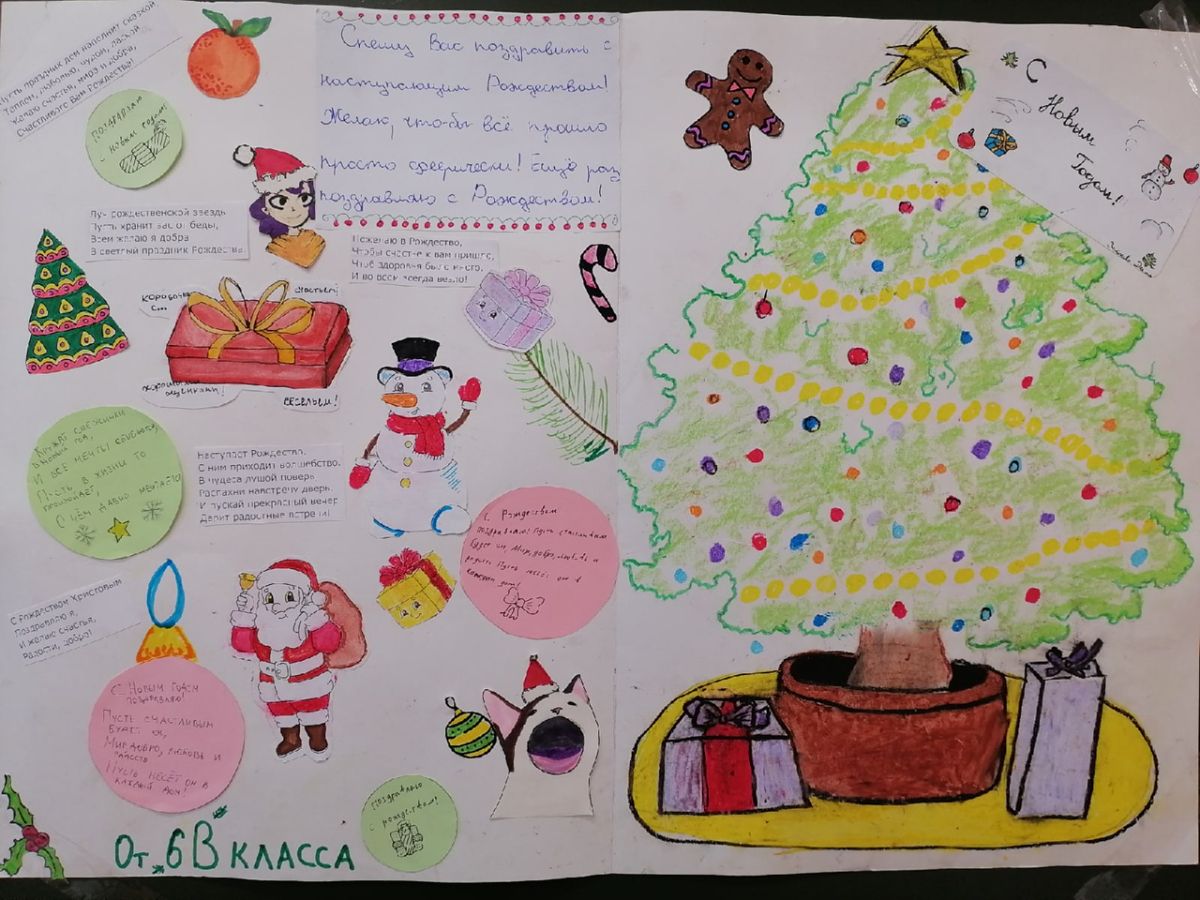 Пусть праздник дом наполнит сказкой,
Теплом, любовью, чудом, лаской
Желаю счастья, миру и добра,
Счастливого Вам Рождества!
Поздравляю
с новым годом!
Спешу Вас поздравить с
наступающим Рождеством!
Желаю, что-бы всё прошло
просто феерически! Ещё раз
поздравляю с Рождеством!
С
Новым
Годом!
Луч рождественской звезды
Пусть хранит вас от беды,
Всем желаю я добра
В светлый праздник Рождества.
Пожелаю в Рождество,
Чтобы счастье к вам пришло,
Чтоб здоровья было много,
И во всем всегда везло!
Коробочка
с...
счастьем!
хорошими
оценками!
весельем!
Кружат снежинки
в новый год,
И все мечты сбываются,
Пусть в жизни то
произойдёт,
О чём давно мечтаете
Наступает Рождество,
С ним приходит волшебство.
В чудеса душой поверь
Распахни навстречу дверь.
И пускай прекрасный вечер
Дарит радостные встречи!
С Рождеством
поздравляю! Пусть счастливым
будет он, Мир, добро, любовь и
радость Пусть несёт он в
каждый дом!
С Рождеством Христовым
Поздравляю я,
И желаю счастья,
Радости, добра!
С Новым Годом
поздравляю!
Пусть счастливым
будет он,
Мир, добро, любовь и
радость
Пусть несёт он в
каждый дом!
Поздравляю
с рождеством!
От "6В" класса